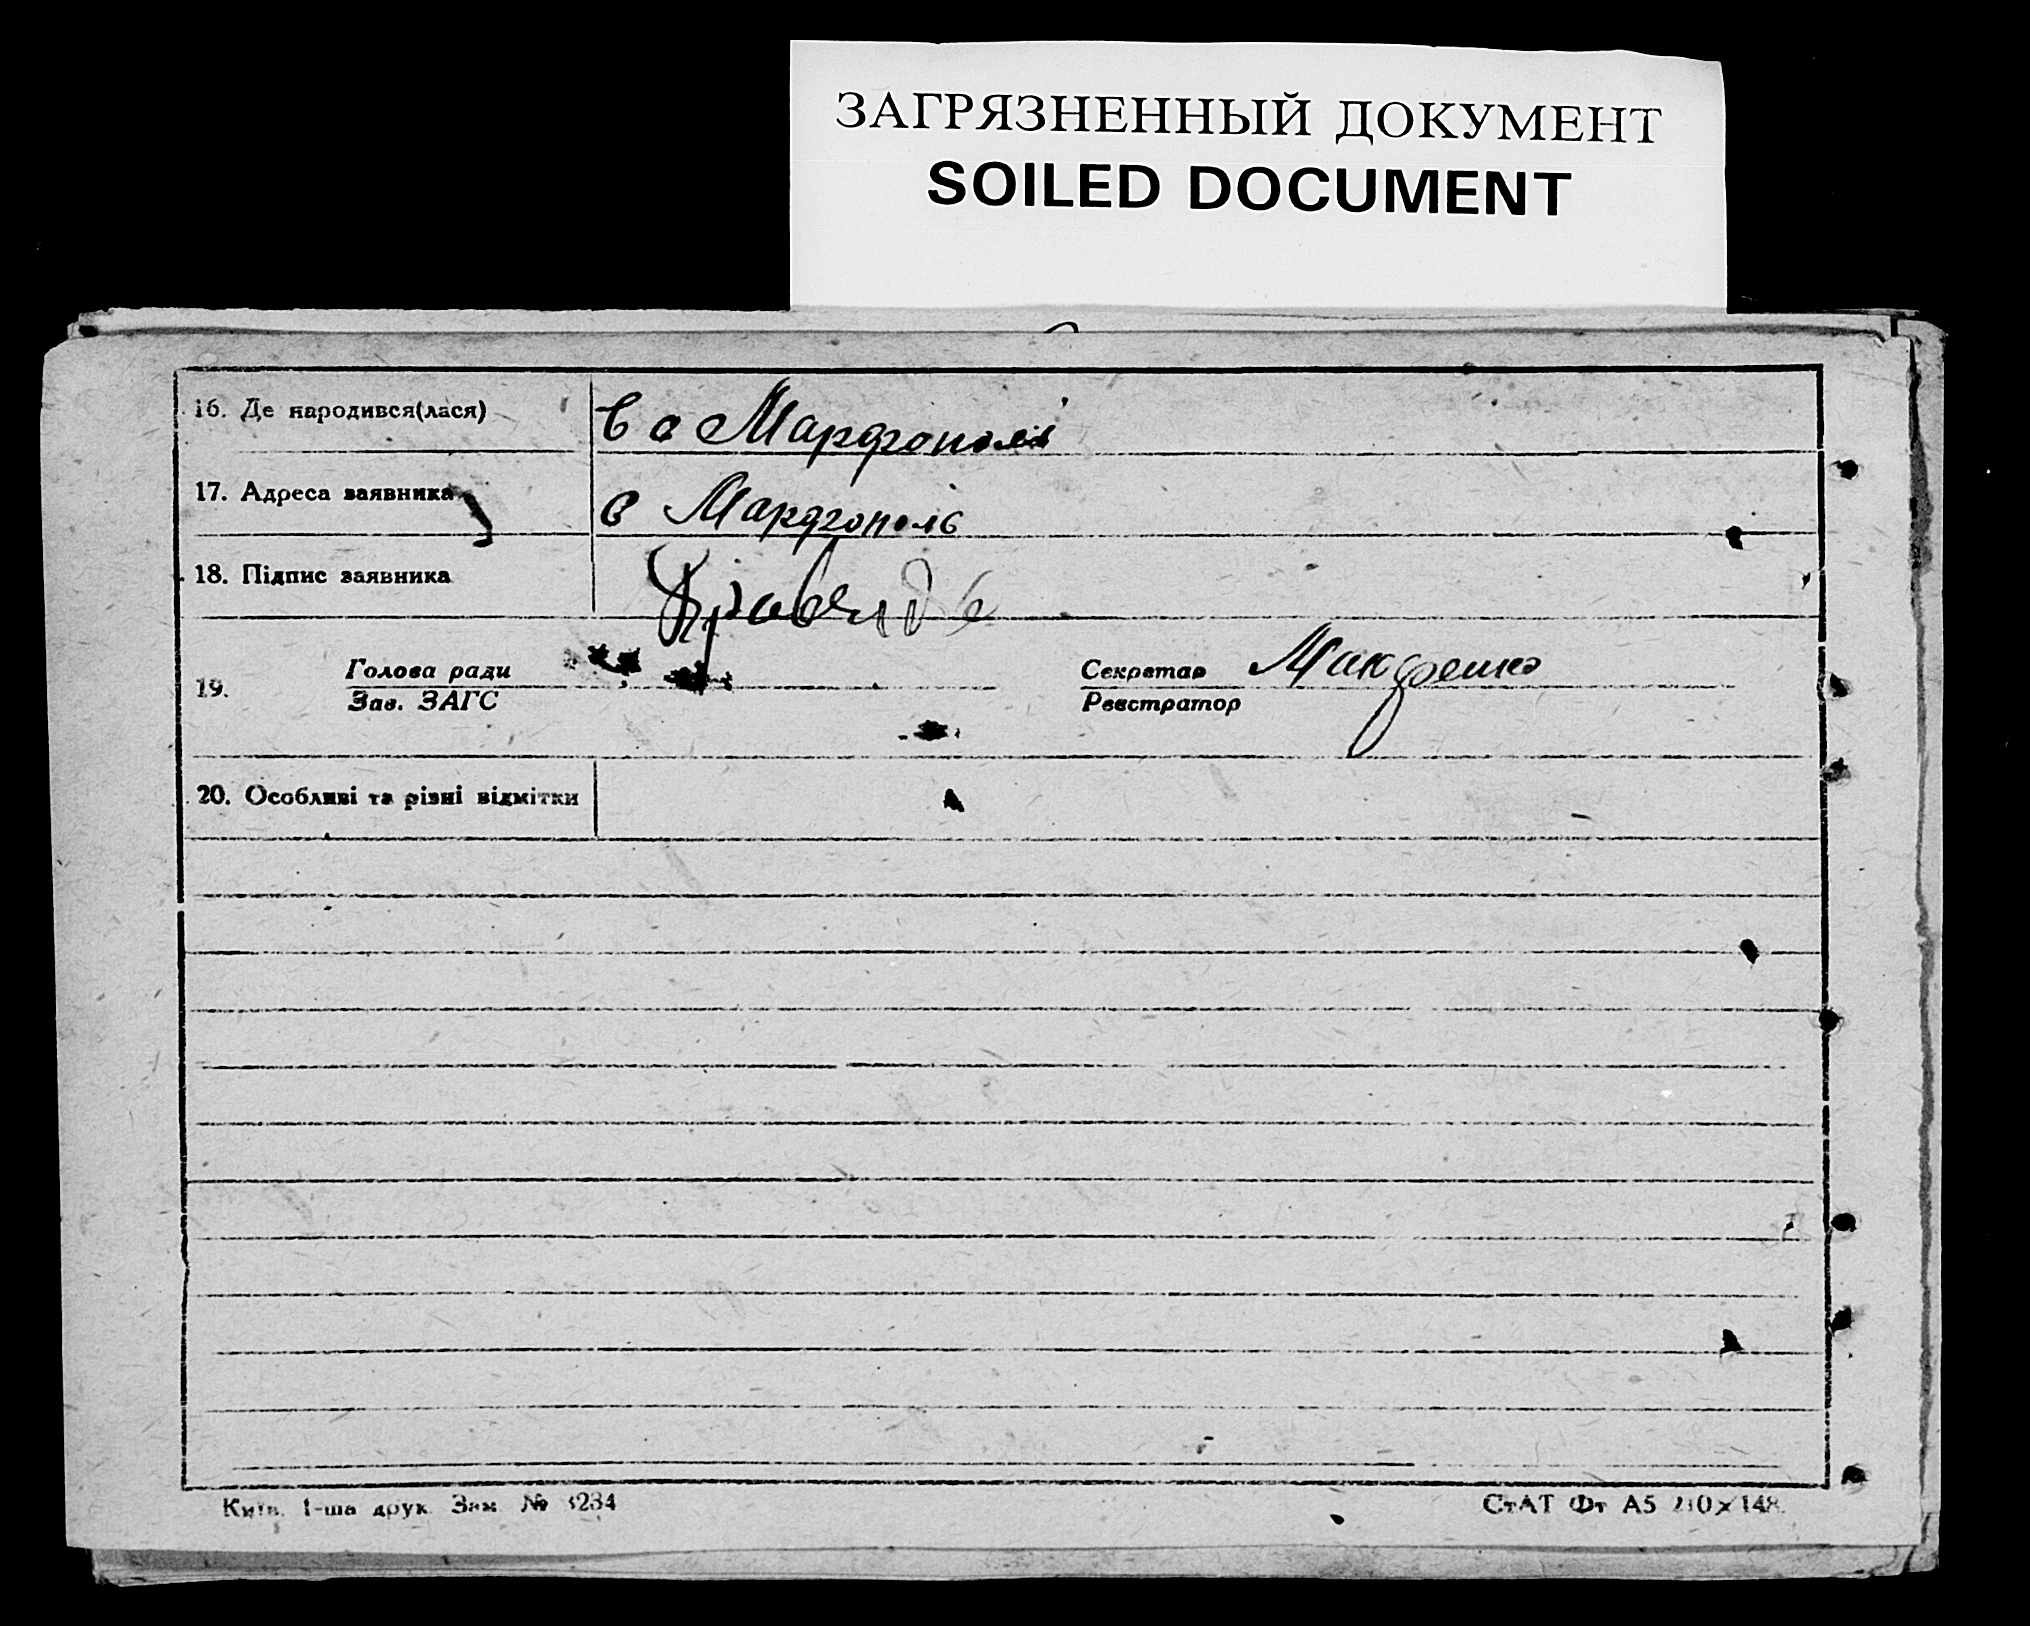 ЗАГРЯЗНЕННЫЙ ДОКУМЕНТ
SOILED DOCUMENT
16. Де народився(лася) В с Марфополі
17. Адреса заявника с Марфополь
18. Підпис заявника
19. Голова ради Секретар
Зав. ЗАГС Реєстратор
20. Особливі та різні відмітки
Київ. 1-ша друк. Зам. №
СтАТ Фт А5 210×148.